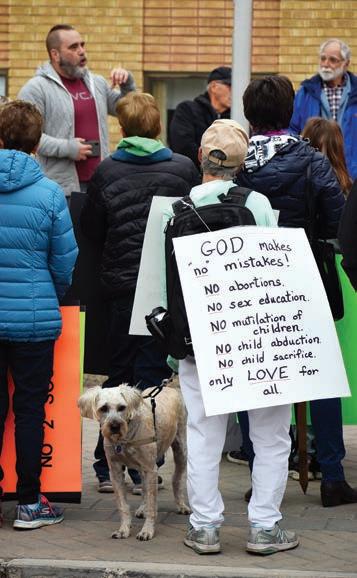 GOD makes
"no" mistakes!
NO abortions.
NO sex education.
NO mutilation of
children.
NO child abduction.
NO child sacrifice.
only LOVE for
all.
NO 2 SO